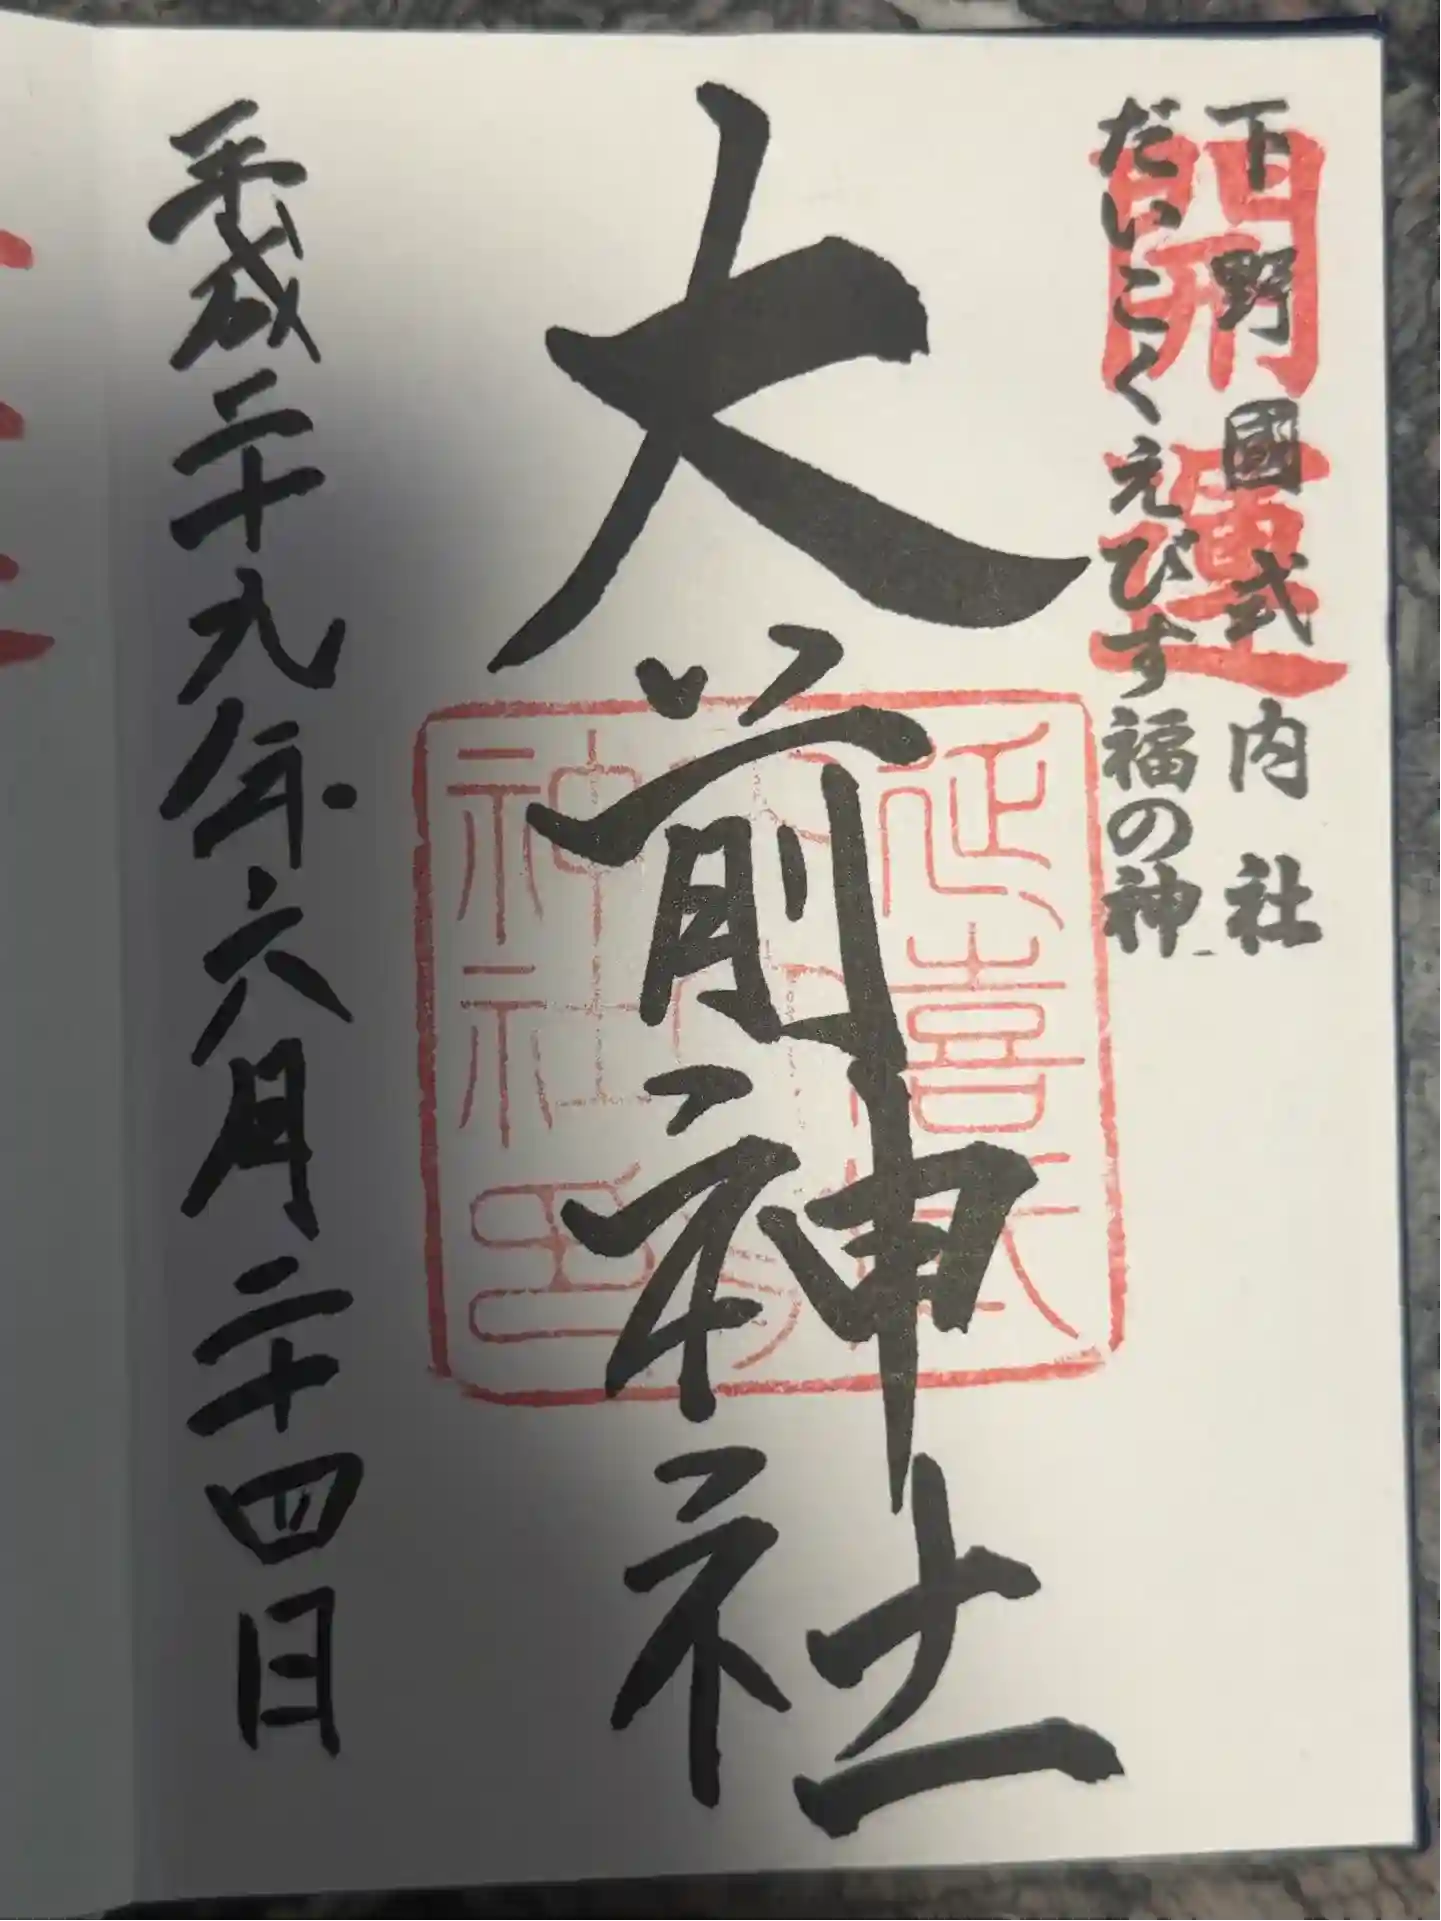 開運
下野國式内社
だいこくえびす福の神
大前神社
延喜式内
神社印
平成二十九年六月二十四日